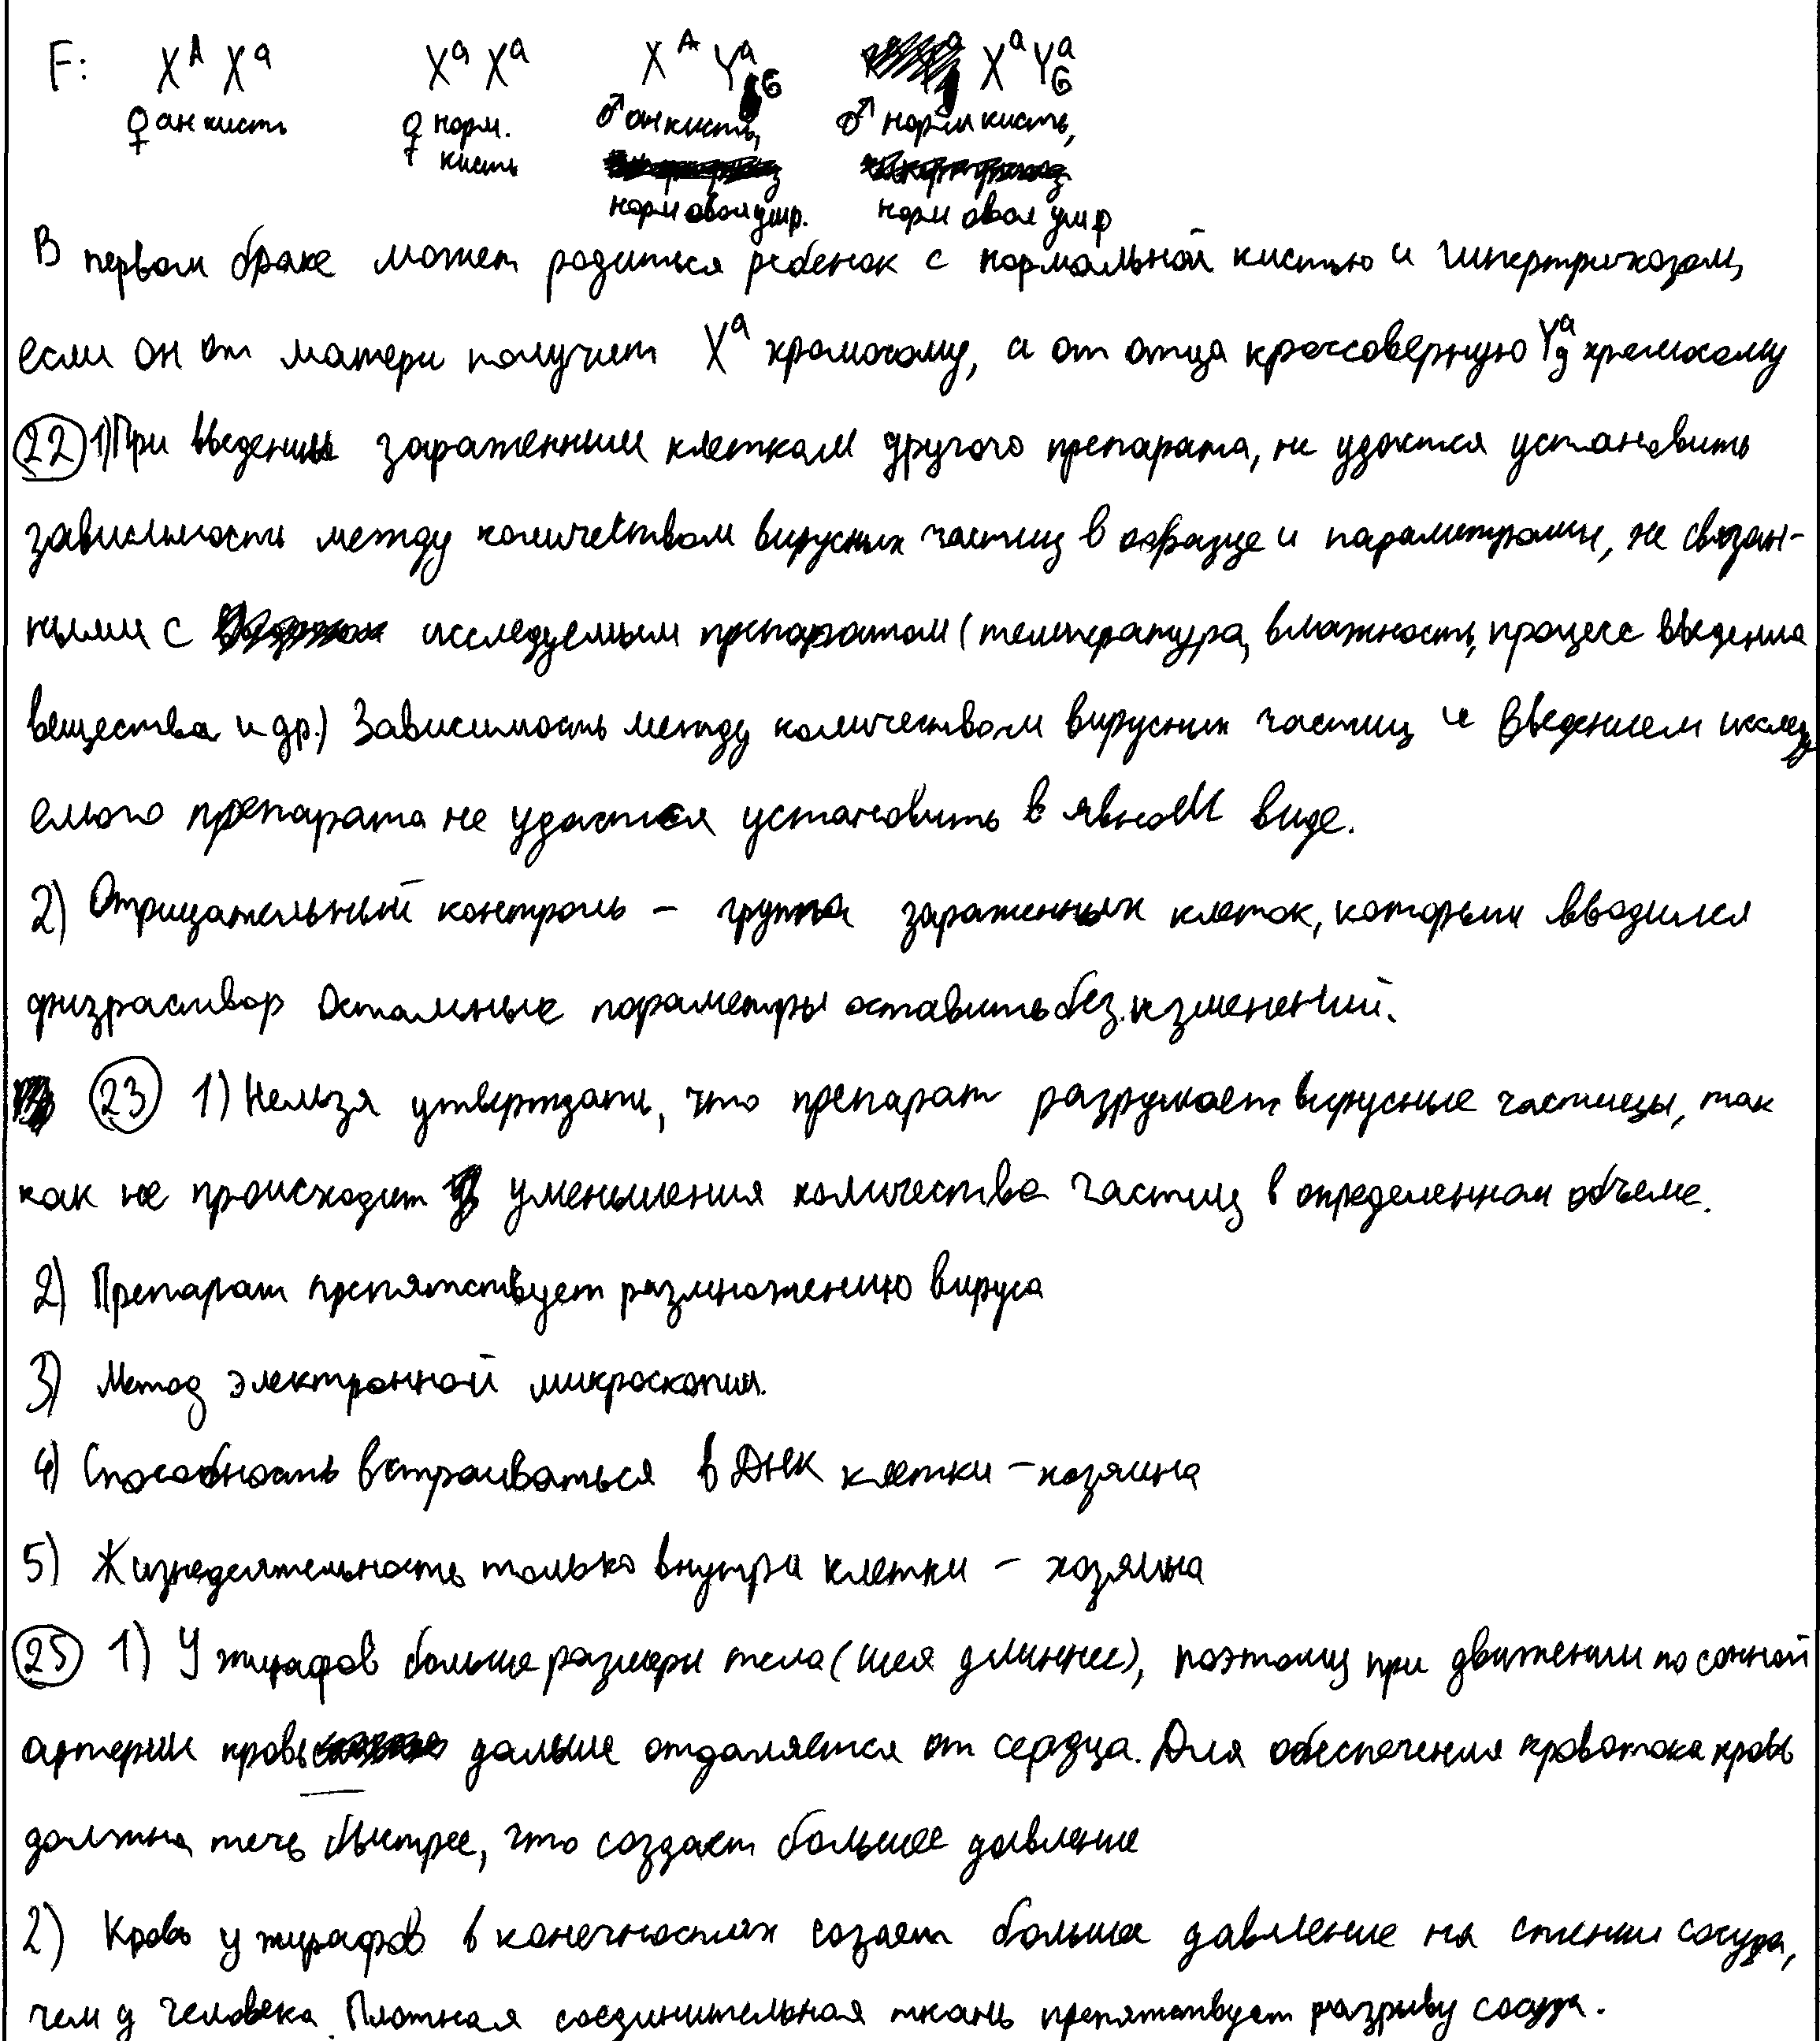 F: X^A X^a X^a X^a X^A Y^a_G X^a Y^a_G
♀ ан кисть ♀ норм. ♂ ан кисть, ♂ норм кисть,
кисть
норм овол ушр. норм овол ушр
В первом браке может родиться ребенок с нормальной кистью и гипертрихозом,
если он от матери получит X^a хромосому, а от отца кроссоверную Y^a_g хромосому
22 1) При введении зараженным клеткам другого препарата, не удастся установить
зависимость между количеством вирусных частиц в образце и параметрами, не связан-
ными с исследуемым препаратом (температура, влажность, процесс введения
вещества и др.) Зависимость между количеством вирусных частиц и введением исследу
емого препарата не удастся установить в явном виде.
2) Отрицательный контроль – группа зараженных клеток, которым вводился
физраствор Остальные параметры оставить без изменений.
23 1) Нельзя утверждать, что препарат разрушает вирусные частицы, так
как не происходит уменьшения количества частиц в определенном объеме.
2) Препарат препятствует размножению вируса
3) Метод электронной микроскопии.
4) Способность встраиваться в ДНК клетки – хозяина
5) Жизнедеятельность только внутри клетки – хозяина
25 1) У жирафов больше размеры тела (шея длиннее), поэтому при движении по сонной
артерии кровь дальше отдаляется от сердца. Для обеспечения кровотока кровь
должна течь быстрее, что создает большее давление
2) Кровь у жирафов в конечностях создает больше давление на стенки сосуда,
чем у человека. Плотная соединительная ткань препятствует разрыву сосуда.